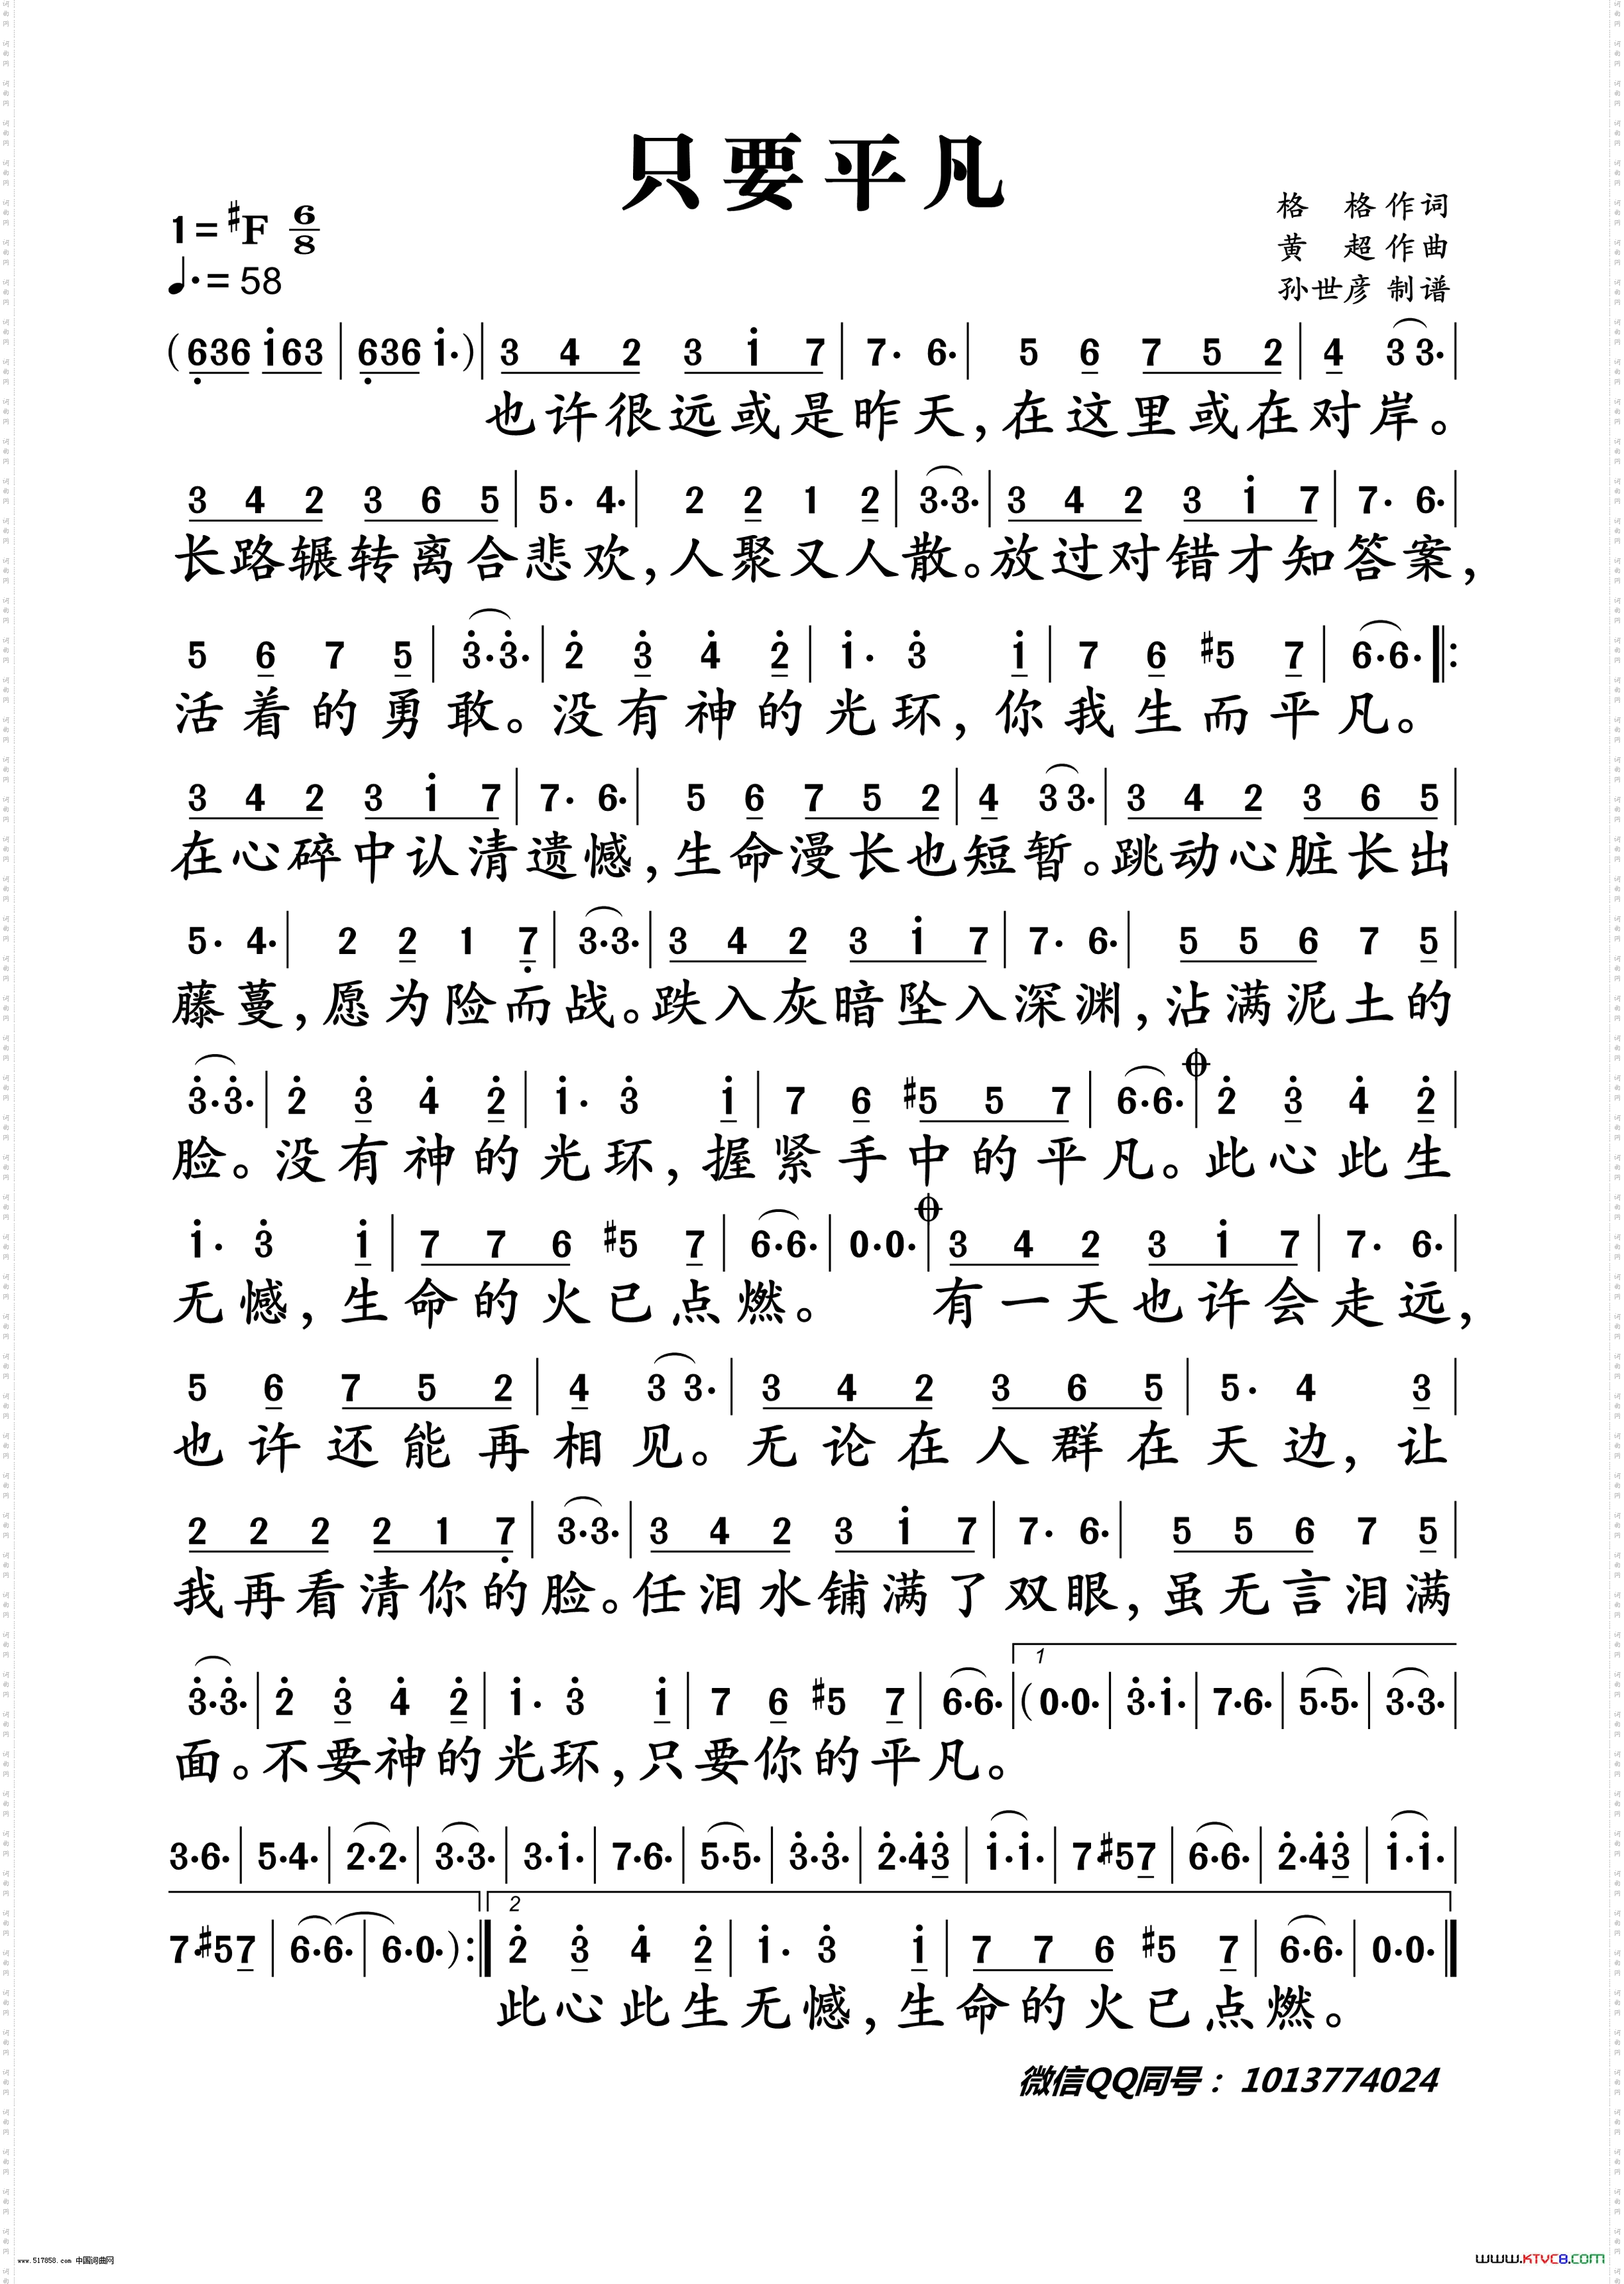 只要平凡
1=#F 6/8
♩.=58
格 格 作词
黄 超 作曲
孙世彦 制谱
(636 i63 | 636 i·) | 3 4 2 3 i 7 | 7· 6· | 5 6 7 5 2 | 4 3 3· |
也许很远或是昨天,在这里或在对岸。
3 4 2 3 6 5 | 5· 4· | 2 2 1 2 | 3·3· | 3 4 2 3 i 7 | 7· 6· |
长路辗转离合悲欢,人聚又人散。放过对错才知答案,
5 6 7 5 | 3·3· | 2 3 4 2 | i· 3 i | 7 6 #5 7 | 6·6· ‖:
活着的勇敢。没有神的光环,你我生而平凡。
3 4 2 3 i 7 | 7· 6· | 5 6 7 5 2 | 4 3 3· | 3 4 2 3 6 5 |
在心碎中认清遗憾,生命漫长也短暂。跳动心脏长出
5· 4· | 2 2 1 7 | 3·3· | 3 4 2 3 i 7 | 7· 6· | 5 5 6 7 5 |
藤蔓,愿为险而战。跌入灰暗坠入深渊,沾满泥土的
3·3· | 2 3 4 2 | i· 3 i | 7 6 #5 5 7 | 6·6· | 2 3 4 2 |
脸。没有神的光环,握紧手中的平凡。此心此生
i· 3 i | 7 7 6 #5 7 | 6·6· | 0·0· | 3 4 2 3 i 7 | 7· 6· |
无憾,生命的火已点燃。 有一天也许会走远,
5 6 7 5 2 | 4 3 3· | 3 4 2 3 6 5 | 5· 4 3 |
也许还能再相见。无论在人群在天边,让
2 2 2 2 1 7 | 3·3· | 3 4 2 3 i 7 | 7· 6· | 5 5 6 7 5 |
我再看清你的脸。任泪水铺满了双眼,虽无言泪满
1
3·3· | 2 3 4 2 | i· 3 i | 7 6 #5 7 | 6·6· | (0·0· | 3·i· | 7·6· | 5·5· | 3·3· |
面。不要神的光环,只要你的平凡。
3·6· | 5·4· | 2·2· | 3·3· | 3·i· | 7·6· | 5·5· | 3·3· | 2·43 | i·i· | 7·#57 | 6·6· | 2·43 | i·i· |
2
7·#57 | 6·6· | 6·0·) :‖ 2 3 4 2 | i· 3 i | 7 7 6 #5 7 | 6·6· | 0·0· ‖
此心此生无憾,生命的火已点燃。
微信QQ同号: 1013774024
www.517858.com 中国词曲网
www.KTVC8.com